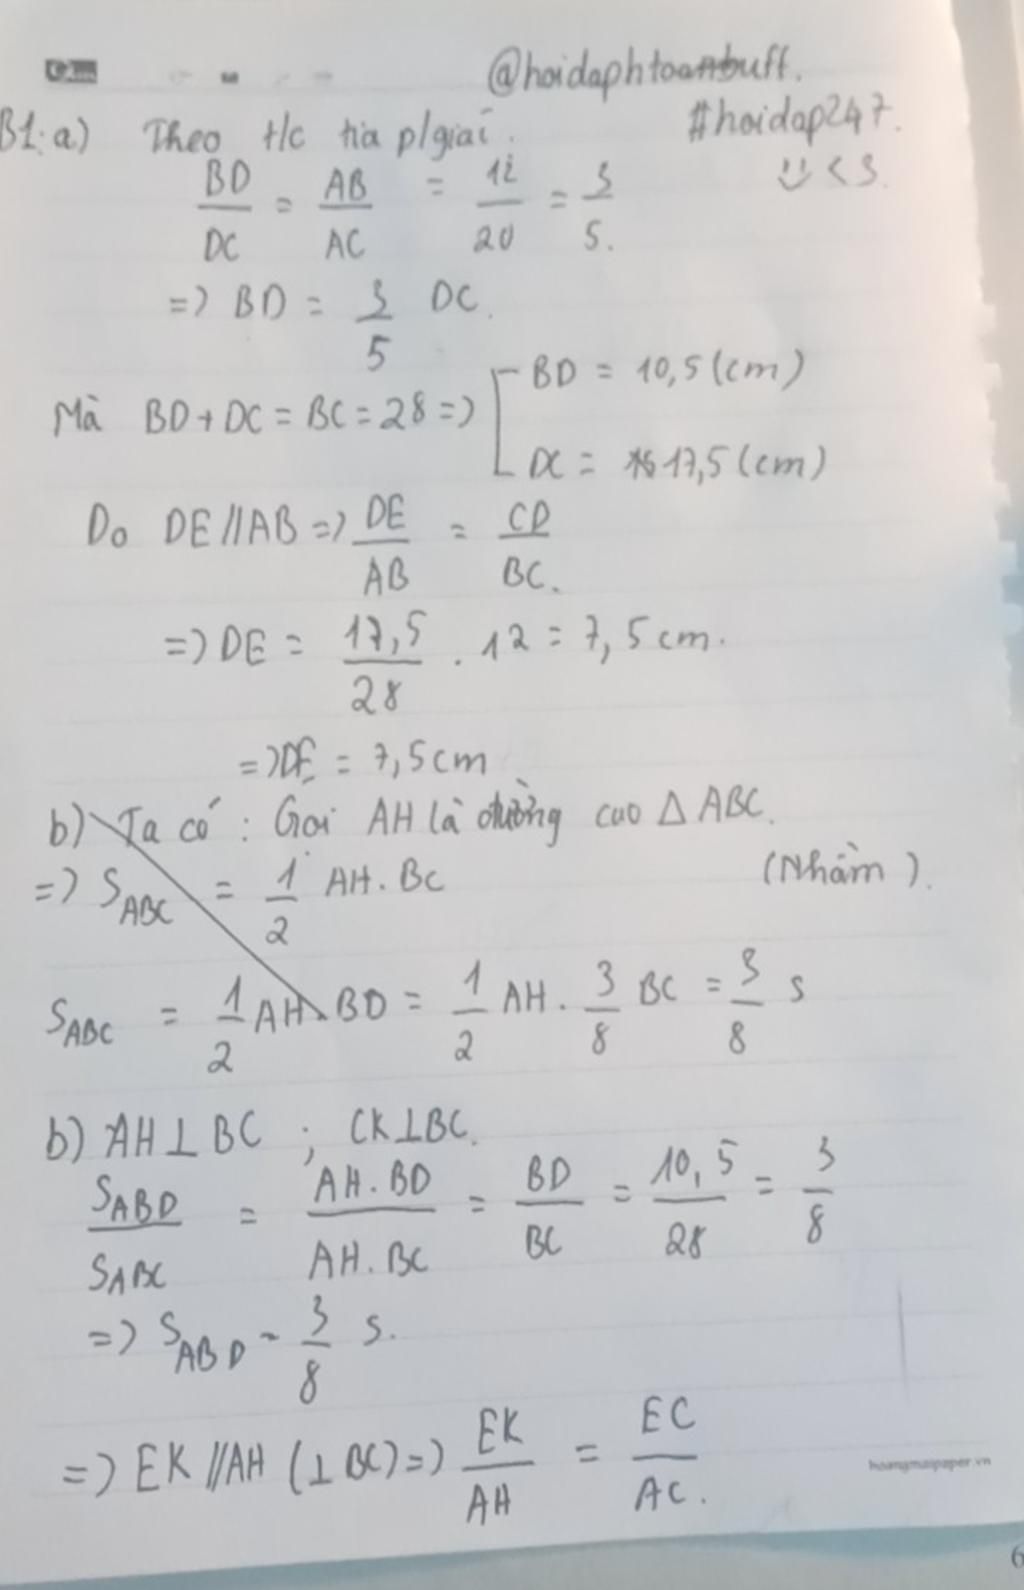 @hoidaphtoanbuff.
B1:a) Theo t/c tia p/giác.
#hoidap247.
BD/DC = AB/AC = 12/20 = 3/5.
<3.
=> BD = 3/5 DC.
Mà BD + DC = BC = 28 => [ BD = 10,5 (cm)
DC = 17,5 (cm)
Do DE // AB => DE/AB = CD/BC.
=> DE = 17,5/28 . 12 = 7,5 cm.
=> DE = 7,5cm
b) Ta có : Gọi AH là đường cao △ ABC.
=> S_ABC = 1/2 AH. BC (Nhầm).
S_ABC = 1/2 AH. BD = 1/2 AH. 3/8 BC = 3/8 S
b) AH ⊥ BC ; CK ⊥ BC.
S_ABD/S_ABC = AH. BD/AH. BC = BD/BC = 10,5/28 = 3/8
=> S_ABD = 3/8 S.
=> EK // AH (⊥ BC) => EK/AH = EC/AC.
hoangmaipaper.vn
6